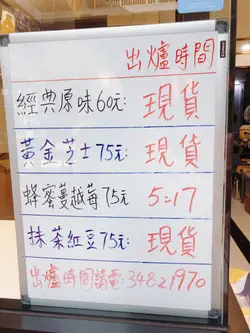 出爐時間
經典原味60元: 現貨
黃金芝士75元: 現貨
蜂蜜蔓越莓75元 5:17
抹茶紅豆75元: 現貨
出爐時間請電: 34821970